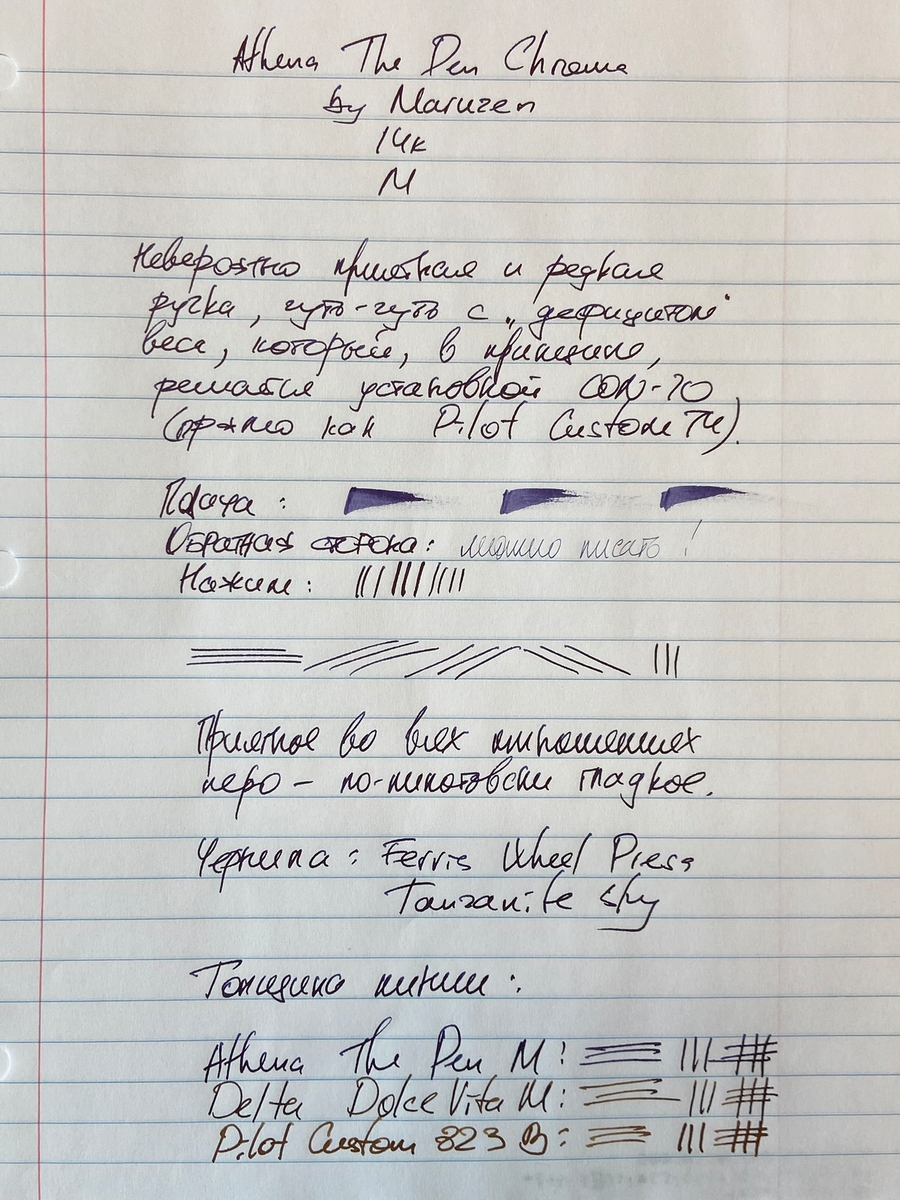 Athena The Pen Chroma
by Maruzen
14к
M
Невероятно приятная и редкая
ручка, чуть-чуть с „дефицитом"
веса, который, в принципе,
решается установкой CON-70
(прямо как Pilot Custom 74).
Подача:
Обратная сторона: можно писать!
Нажим:
Приятное во всех отношениях
перо – по-пилотовски гладкое.
Чернила: Ferris Wheel Press
Tanzanite Sky
Толщина линии:
Athena The Pen M:
Delta Dolce Vita M:
Pilot Custom 823 B: